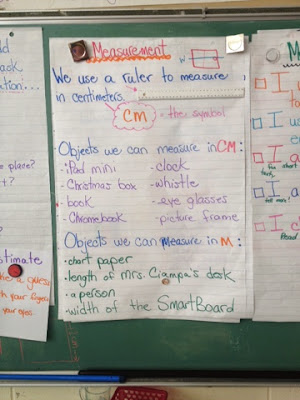 Measurement
We use a ruler to measure
in centimeters.
cm - the symbol
Objects we can measure in CM:
• iPad mini
• Christmas box
• book
• Chromebook
- clock
- whistle
- eye glasses
- picture frame
Objects we can measure in M:
• chart paper
• length of Mrs. Ciampa's desk
• a person
• width of the SmartBoard
ask
place?
timate
a guess
your fingers
your eyes.
M
I
I
I
I
I